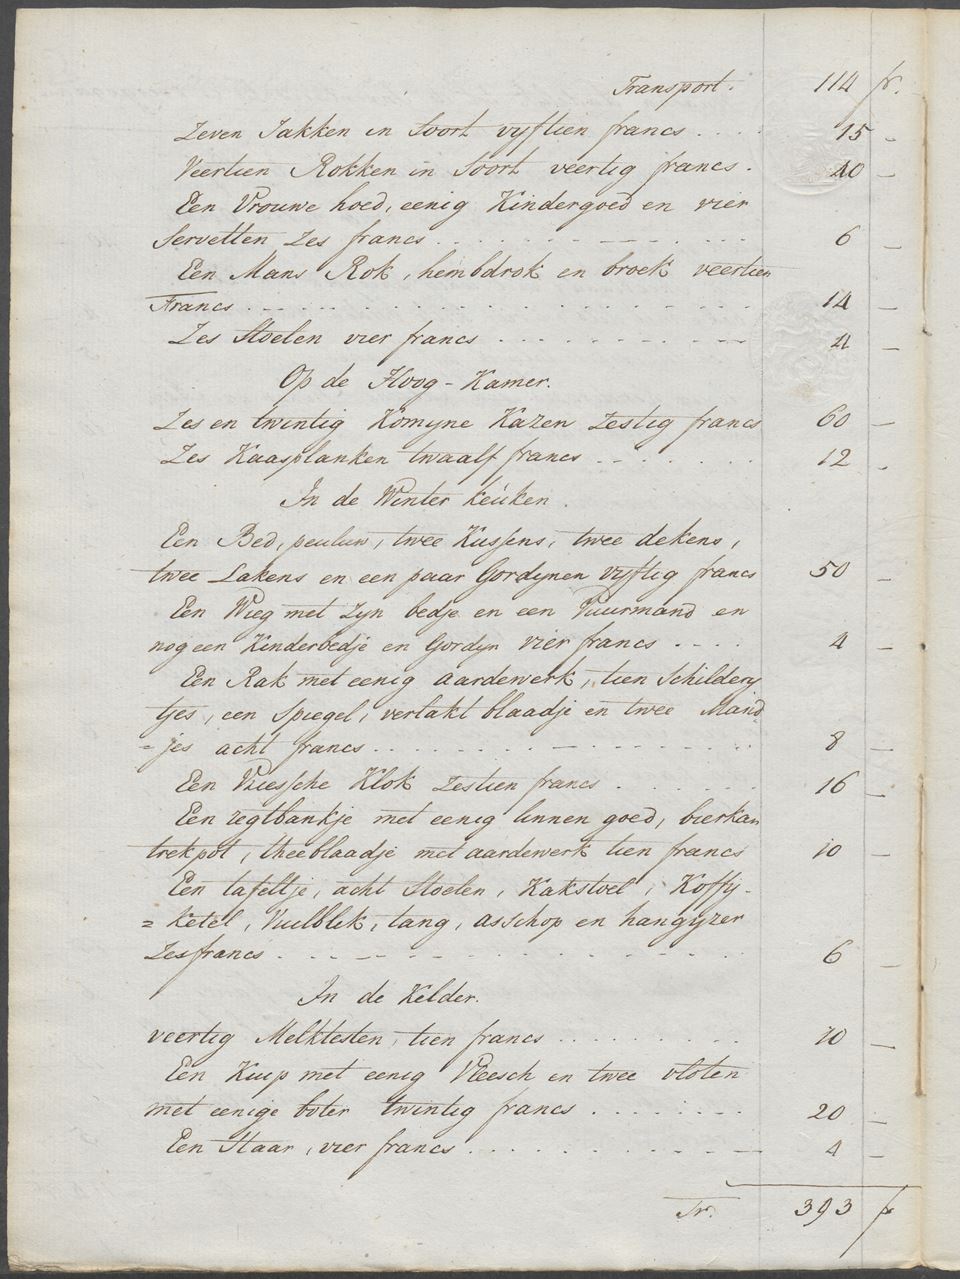 Transport. 114 fr.
Zeven Jakken in Soort vyftien francs . . . . 15 -
Veertien Rokken in Soort veertig francs . 40 -
Een Vrouwe hoed, eenig Kindergoed en vier
Servetten Zes francs . . . . . . . . . . 6 -
Een Mans Rok, hembdrok en broek veertien
Francs . . . . . . . . . . . . 14 -
Zes Stoelen vier francs . . . . . . . . . 4 -
Op de Hoog-Kamer.
Zes en twintig Komyne Kazen Zestig francs 60 -
Zes Kaasplanken twaalf francs . . . . . . 12 -
In de Winter keuken.
Een Bed, peuluw, twee Kussens, twee dekens,
twee Lakens en een paar Gordynen vyftig francs 50 -
Een Wieg met Zyn bedje en een Vuurmand en
nog een Kinderbedje en Gordyn vier francs . . . . 4 -
Een Rak met eenig aardewerk, tien Schildery
tjes, een Spiegel, verlakt blaadje en twee Mand
=jes acht francs . . . . . . . . . . . 8 -
Een Vriesche Klok Zestien francs . . . . . 16 -
Een zegtbankje met eenig linnen goed, bierkan
trekpot, theeblaadje met aardewerk tien francs 10 -
Een tafeltje, acht Stoelen, Kakstoel, Koffy-
=ketel, Vuilblik, tang, asschop en hangyzer
Zes francs . . . . . . . . . . . . 6 -
In de Kelder.
veertig Melktesten, tien francs . . . . . . . . 10 -
Een Kuip met eenig Vleesch en twee vloten
met eenige boter twintig francs . . . . . . . 20 -
Een Staar, vier francs . . . . . . . . . . 4 -
Tr. 393 fr